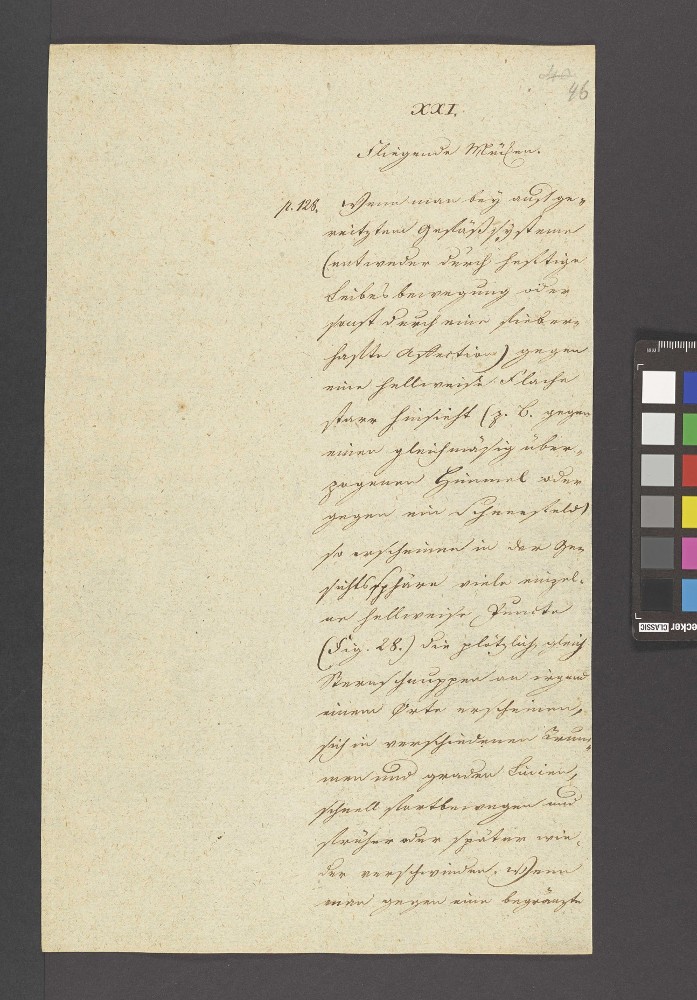 40
46
XXI.
Fliegende Mücken.
p. 128. Wenn man bey aufge-
reitztem Gefäßsysteme
(entweder durch heftige
Leibesbewegung oder
sonst durch eine fieber-
hafte Affection) gegen
eine hellweiße Fläche
starr hinsieht (z. B. gegen
einen gleichmäsig über-
zogenen Himmel oder
gegen ein Schneefeld)
so erscheinen in der Ge-
sichtssphäre viele einzel-
ne hellweiße Puncte
(Fig. 28.) die plötzlich, gleich
Sternschnuppen an irgend
einem Orte erscheinen,
sich in verschiedenen Krum-
men und graden Linien,
schnell fortbewegen und
früher oder später wie-
der verschwinden. Wenn
man gegen eine begränzte